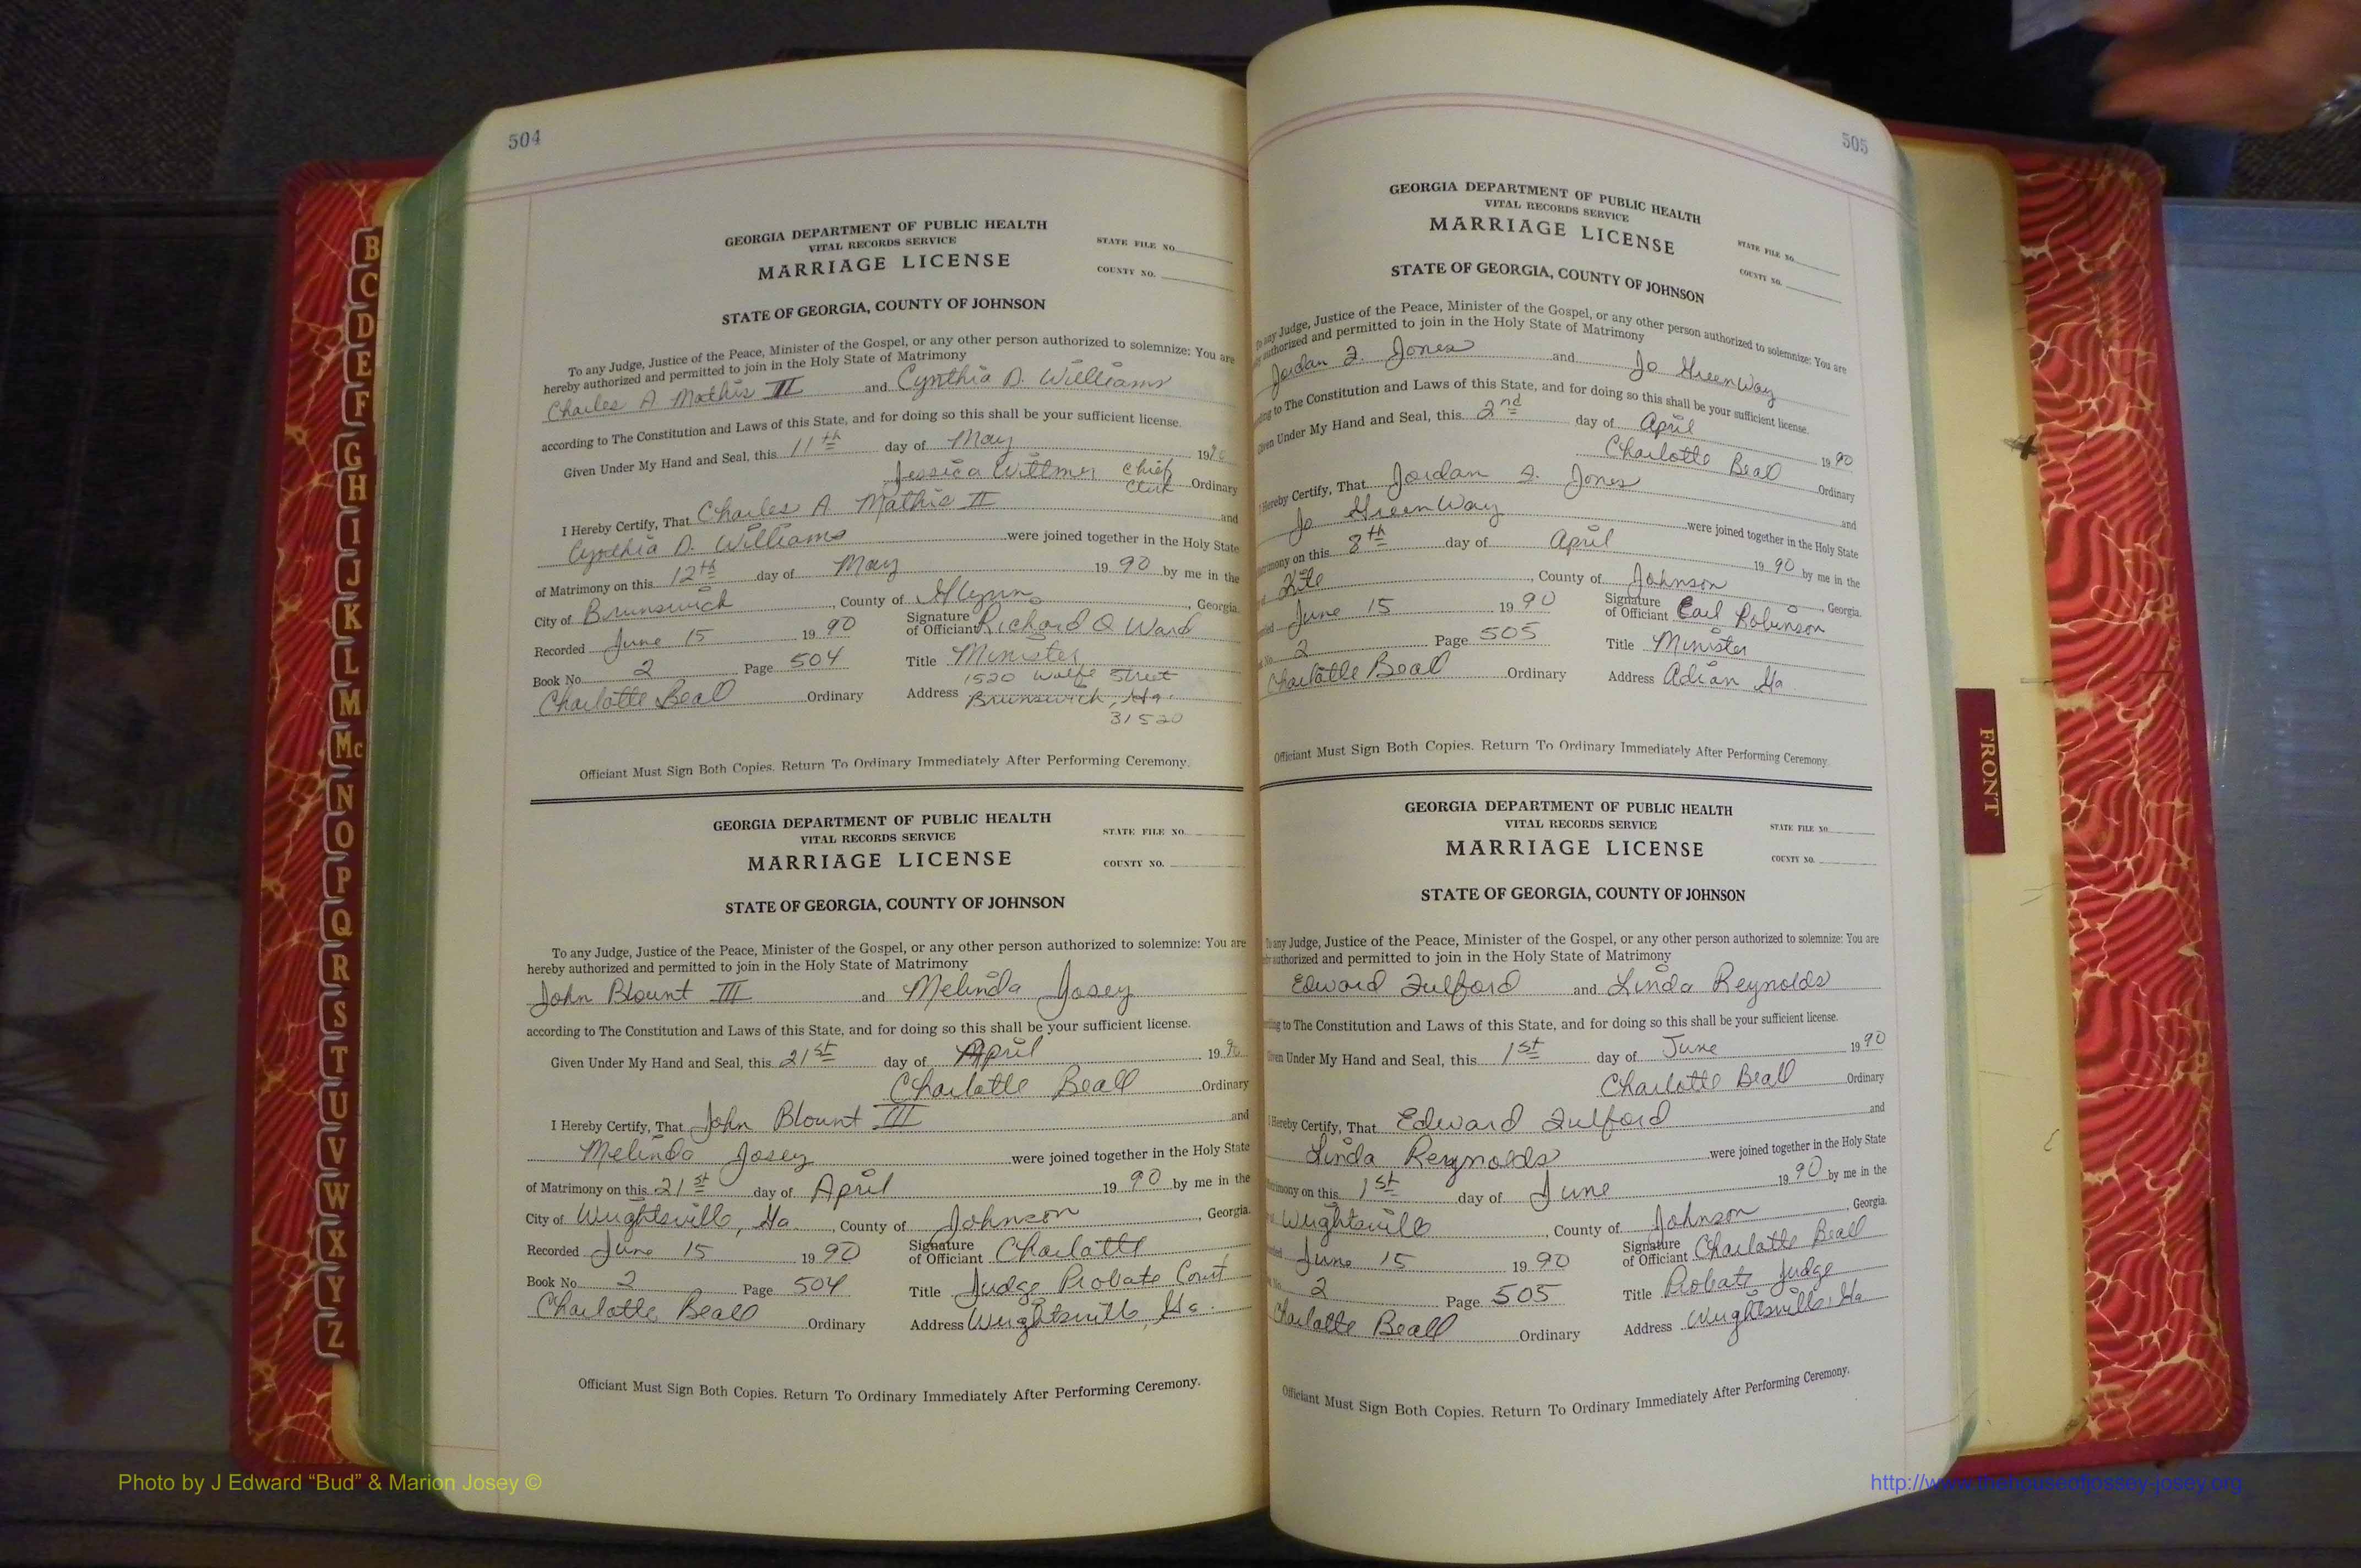 504
GEORGIA DEPARTMENT OF PUBLIC HEALTH
VITAL RECORDS SERVICE
MARRIAGE LICENSE
STATE FILE NO.
COUNTY NO.
STATE OF GEORGIA, COUNTY OF JOHNSON
To any Judge, Justice of the Peace, Minister of the Gospel, or any other person authorized to solemnize: You are
hereby authorized and permitted to join in the Holy State of Matrimony
Charles A. Mathis II and Cynthia D. Williams
according to The Constitution and Laws of this State, and for doing so this shall be your sufficient license.
Given Under My Hand and Seal, this 11th day of May 1990
Jessica Wittmer Chief
Clerk Ordinary
I Hereby Certify, That Charles A Mathis II and
Cynthia D. Williams were joined together in the Holy State
of Matrimony on this 12th day of May 19 90 by me in the
City of Brunswick, County of Glynn, Georgia.
Recorded June 15 19 90 Signature of Officiant Richard O Ward
Book No. 2 Page 504 Title Minister
1520 Wolfe Street
Charlotte Beall Ordinary Address Brunswick, Ga.
31520
Officiant Must Sign Both Copies. Return To Ordinary Immediately After Performing Ceremony.
GEORGIA DEPARTMENT OF PUBLIC HEALTH
VITAL RECORDS SERVICE
MARRIAGE LICENSE
STATE FILE NO.
COUNTY NO.
STATE OF GEORGIA, COUNTY OF JOHNSON
To any Judge, Justice of the Peace, Minister of the Gospel, or any other person authorized to solemnize: You are
hereby authorized and permitted to join in the Holy State of Matrimony
John Blount III and Melinda Josey
according to The Constitution and Laws of this State, and for doing so this shall be your sufficient license.
Given Under My Hand and Seal, this 21st day of April 1990
Charlotte Beall Ordinary
I Hereby Certify, That John Blount III and
Melinda Josey were joined together in the Holy State
of Matrimony on this 21st day of April 19 90 by me in the
City of Wrightsville, Ga., County of Johnson, Georgia.
Recorded June 15 19 90 Signature of Officiant Charlotte
Book No. 2 Page 504 Title Judge Probate Court
Charlotte Beall Ordinary Address Wrightsville, Ga.
Officiant Must Sign Both Copies. Return To Ordinary Immediately After Performing Ceremony.
505
GEORGIA DEPARTMENT OF PUBLIC HEALTH
VITAL RECORDS SERVICE
MARRIAGE LICENSE
STATE FILE NO.
COUNTY NO.
STATE OF GEORGIA, COUNTY OF JOHNSON
To any Judge, Justice of the Peace, Minister of the Gospel, or any other person authorized to solemnize: You are
authorized and permitted to join in the Holy State of Matrimony
Jordan F. Jones and Jo GreenWay
to The Constitution and Laws of this State, and for doing so this shall be your sufficient license.
Given Under My Hand and Seal, this 2nd day of April 19 90
Charlotte Beall Ordinary
I Hereby Certify, That Jordan F. Jones and
Jo GreenWay were joined together in the Holy State
on this 8th day of April 19 90 by me in the
Kite, County of Johnson, Georgia.
June 15 19 90 Signature of Officiant Earl Robinson
2 Page 505 Title Minister
Charlotte Beall Ordinary Address Adrian Ga.
Officiant Must Sign Both Copies. Return To Ordinary Immediately After Performing Ceremony.
GEORGIA DEPARTMENT OF PUBLIC HEALTH
VITAL RECORDS SERVICE
MARRIAGE LICENSE
STATE FILE NO.
COUNTY NO.
STATE OF GEORGIA, COUNTY OF JOHNSON
To any Judge, Justice of the Peace, Minister of the Gospel, or any other person authorized to solemnize: You are
authorized and permitted to join in the Holy State of Matrimony
Edward Fulford and Linda Reynolds
to The Constitution and Laws of this State, and for doing so this shall be your sufficient license.
Given Under My Hand and Seal, this 1st day of June 19 90
Charlotte Beall Ordinary
I Hereby Certify, That Edward Fulford and
Linda Reynolds were joined together in the Holy State
on this 1st day of June 19 90 by me in the
Wrightsville, County of Johnson, Georgia.
June 15 19 90 Signature of Officiant Charlotte Beall
2 Page 505 Title Probate Judge
Charlotte Beall Ordinary Address Wrightsville, Ga
Officiant Must Sign Both Copies. Return To Ordinary Immediately After Performing Ceremony.
B
C
D
E
F
G
H
I
J
K
L
M
Mc
N
O
P
Q
R
S
T
U
V
W
X
Y
Z
FRONT
Photo by J Edward “Bud” & Marion Josey ©
http://www.thehouseofjossey-josey.org